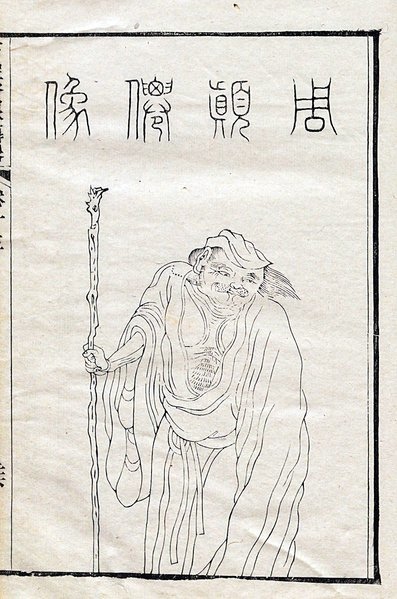 周顛僊像